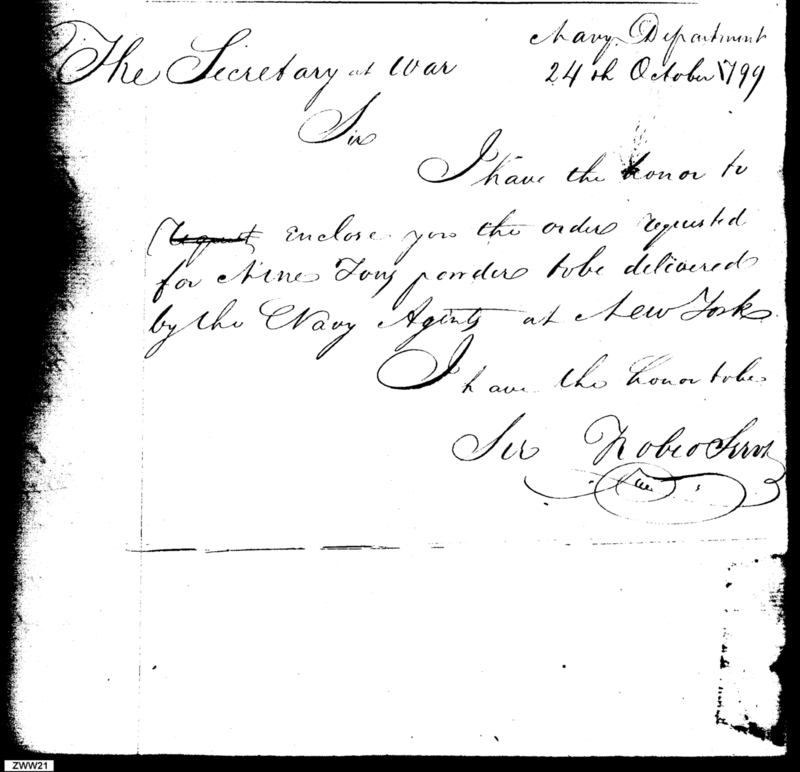 Navy Department
The Secretary at War 24th October 1799
Sir
I have the honor to
request enclose you the order requested
for Nine Tons powder to be delivered
by the Navy Agents at New York
I have the honor to be
Sir Yr obed Servt
ZWW21